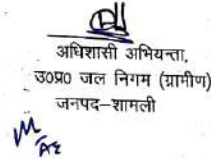 अधिशासी अभियन्ता,
उ0प्र0 जल निगम (ग्रामीण)
जनपद–शामली
AE